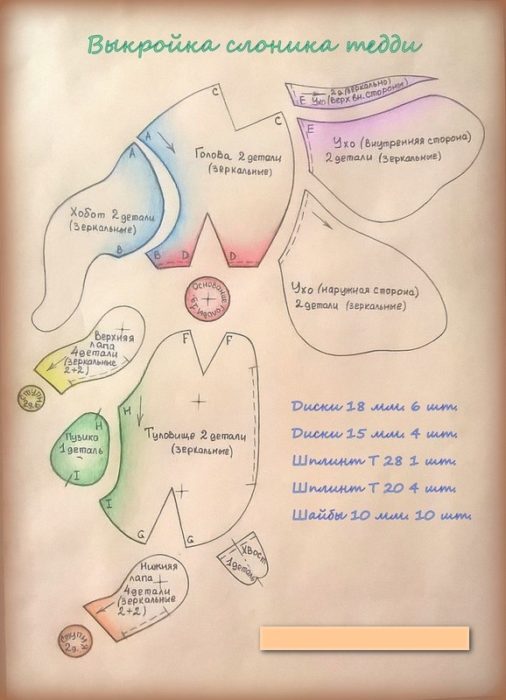 Выкройка слоника тедди
C
C
2 д. (зеркально)
E Ухо (верх вн. стороны)
E
Ухо (внутренняя сторона)
2 детали (зеркальные)
A
A
Голова 2 детали
(зеркальные)
Хобот 2 детали
(зеркальные)
B
B D D
Ухо (наружная сторона)
2 детали (зеркальные)
Основание
головы
Верхняя
лапа
4 детали
(зеркальные
2+2)
F F
Ступня
2 д.
H
H
Пузико
1 деталь
I
I
Туловище 2 детали
(зеркальные)
G G
Диски 18 мм. 6 шт.
Диски 15 мм. 4 шт.
Шплинт Т 28 1 шт.
Шплинт Т 20 4 шт.
Шайбы 10 мм. 10 шт.
Хвост
1 деталь
Нижняя
лапа
4 детали
(зеркальные
2+2)
Ступня
2 д.